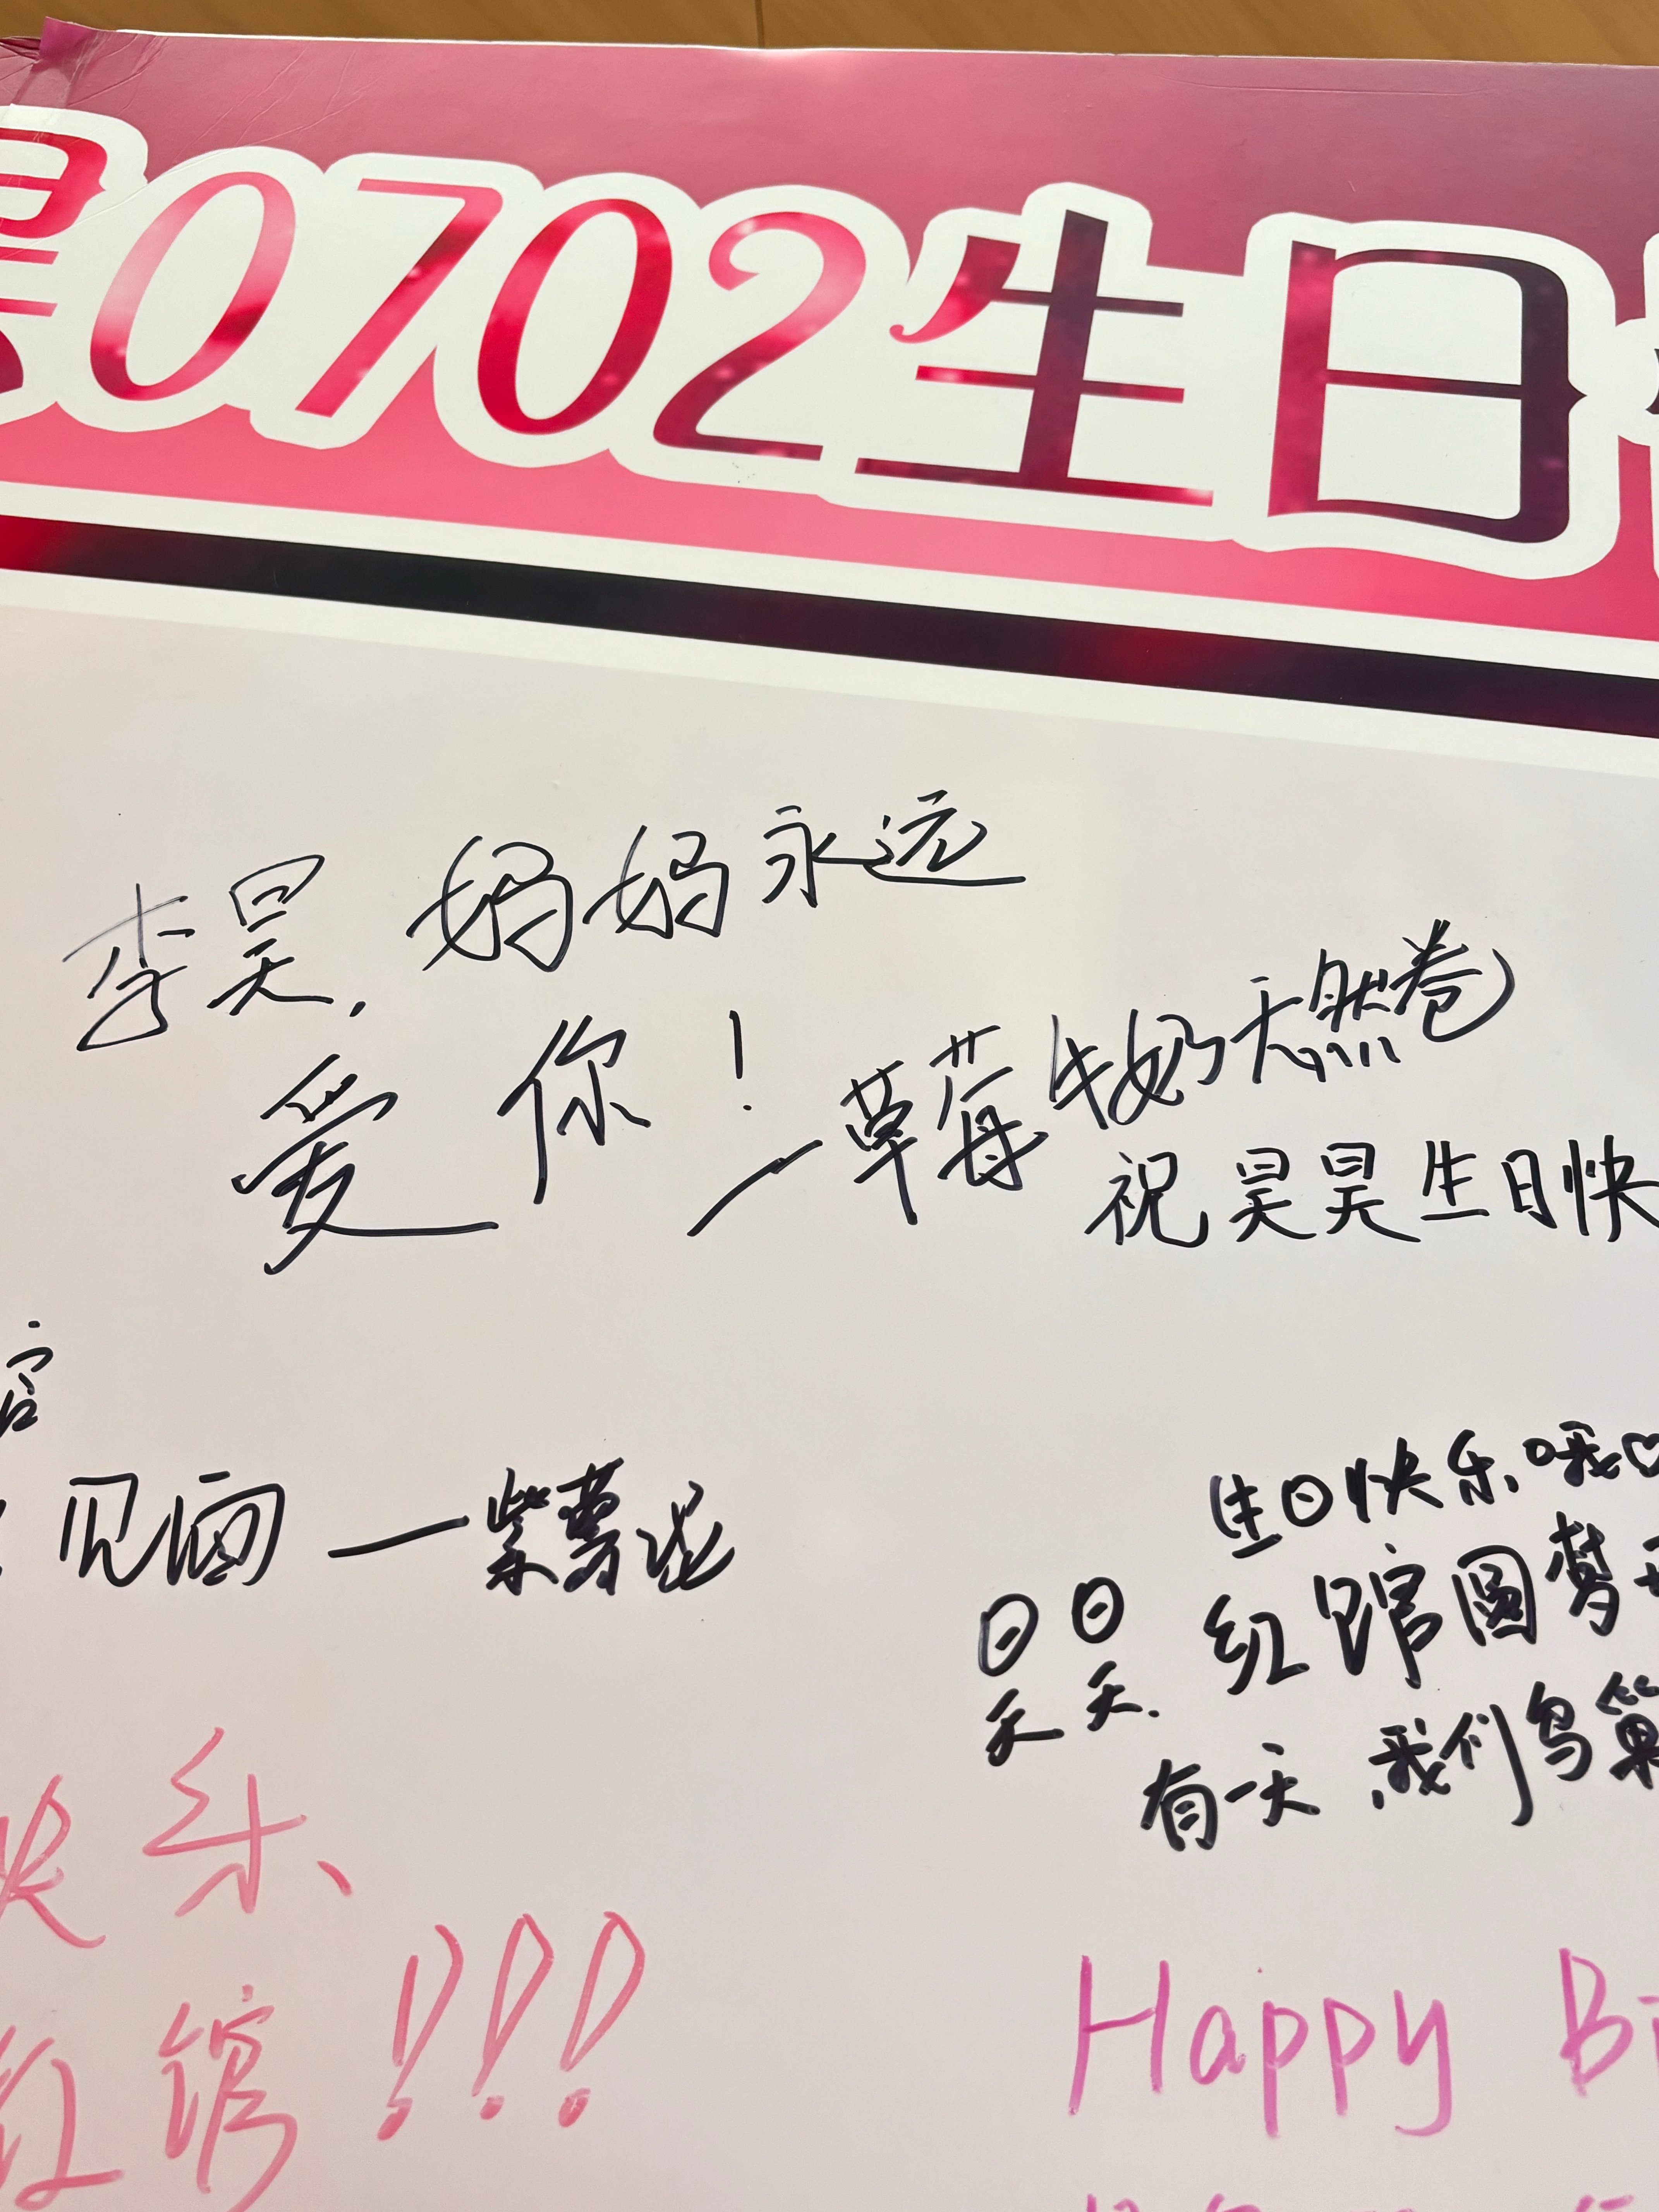 0702生日
李昊,妈妈永远
爱你!
一草莓牛奶天然卷
祝昊昊生日快
见面一紫薯泥
生日快乐哦♡
昊昊,红馆圆梦
有一天,我们鸟巢
快乐、
红馆!!!
Happy